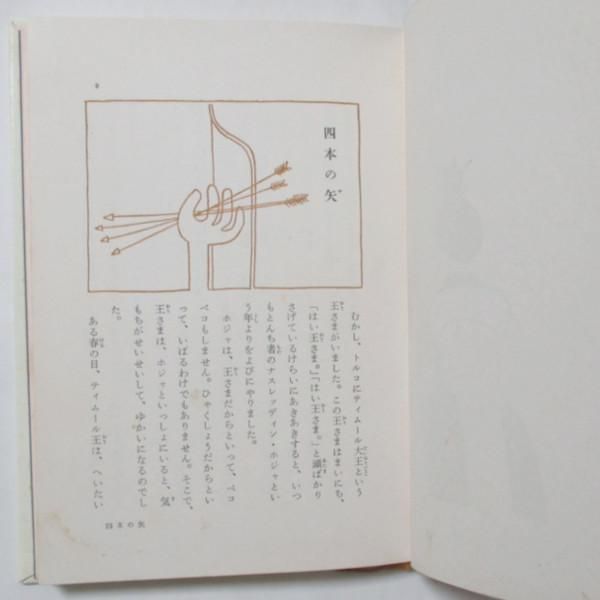 9
四本の矢
むかし、トルコにティムール大王という
王さまがいました。この王さまはまいにち、
「はい王さま。」「はい王さま。」と頭ばかり
さげているけらいにあきあきすると、いつ
もとんち者のナスレッディン・ホジャとい
う年よりをよびにやりました。
ホジャは、王さまだからといって、ペコ
ペコもしません。ひゃくしょうだからとい
って、いばるわけでもありません。そこで、
王さまは、ホジャといっしょにいると、気
もちがせいせいして、ゆかいになるのでし
た。
ある春の日、ティムール王は、へいたい
四本の矢